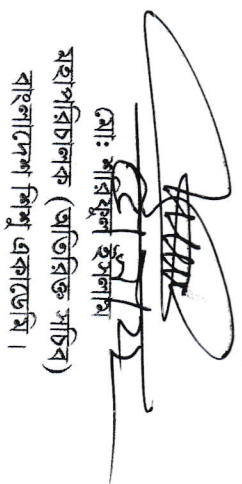 মো: শরিফুল ইসলাম
মহাপরিচালক (অতিরিক্ত সচিব)
বাংলাদেশ শিশু একাডেমি।